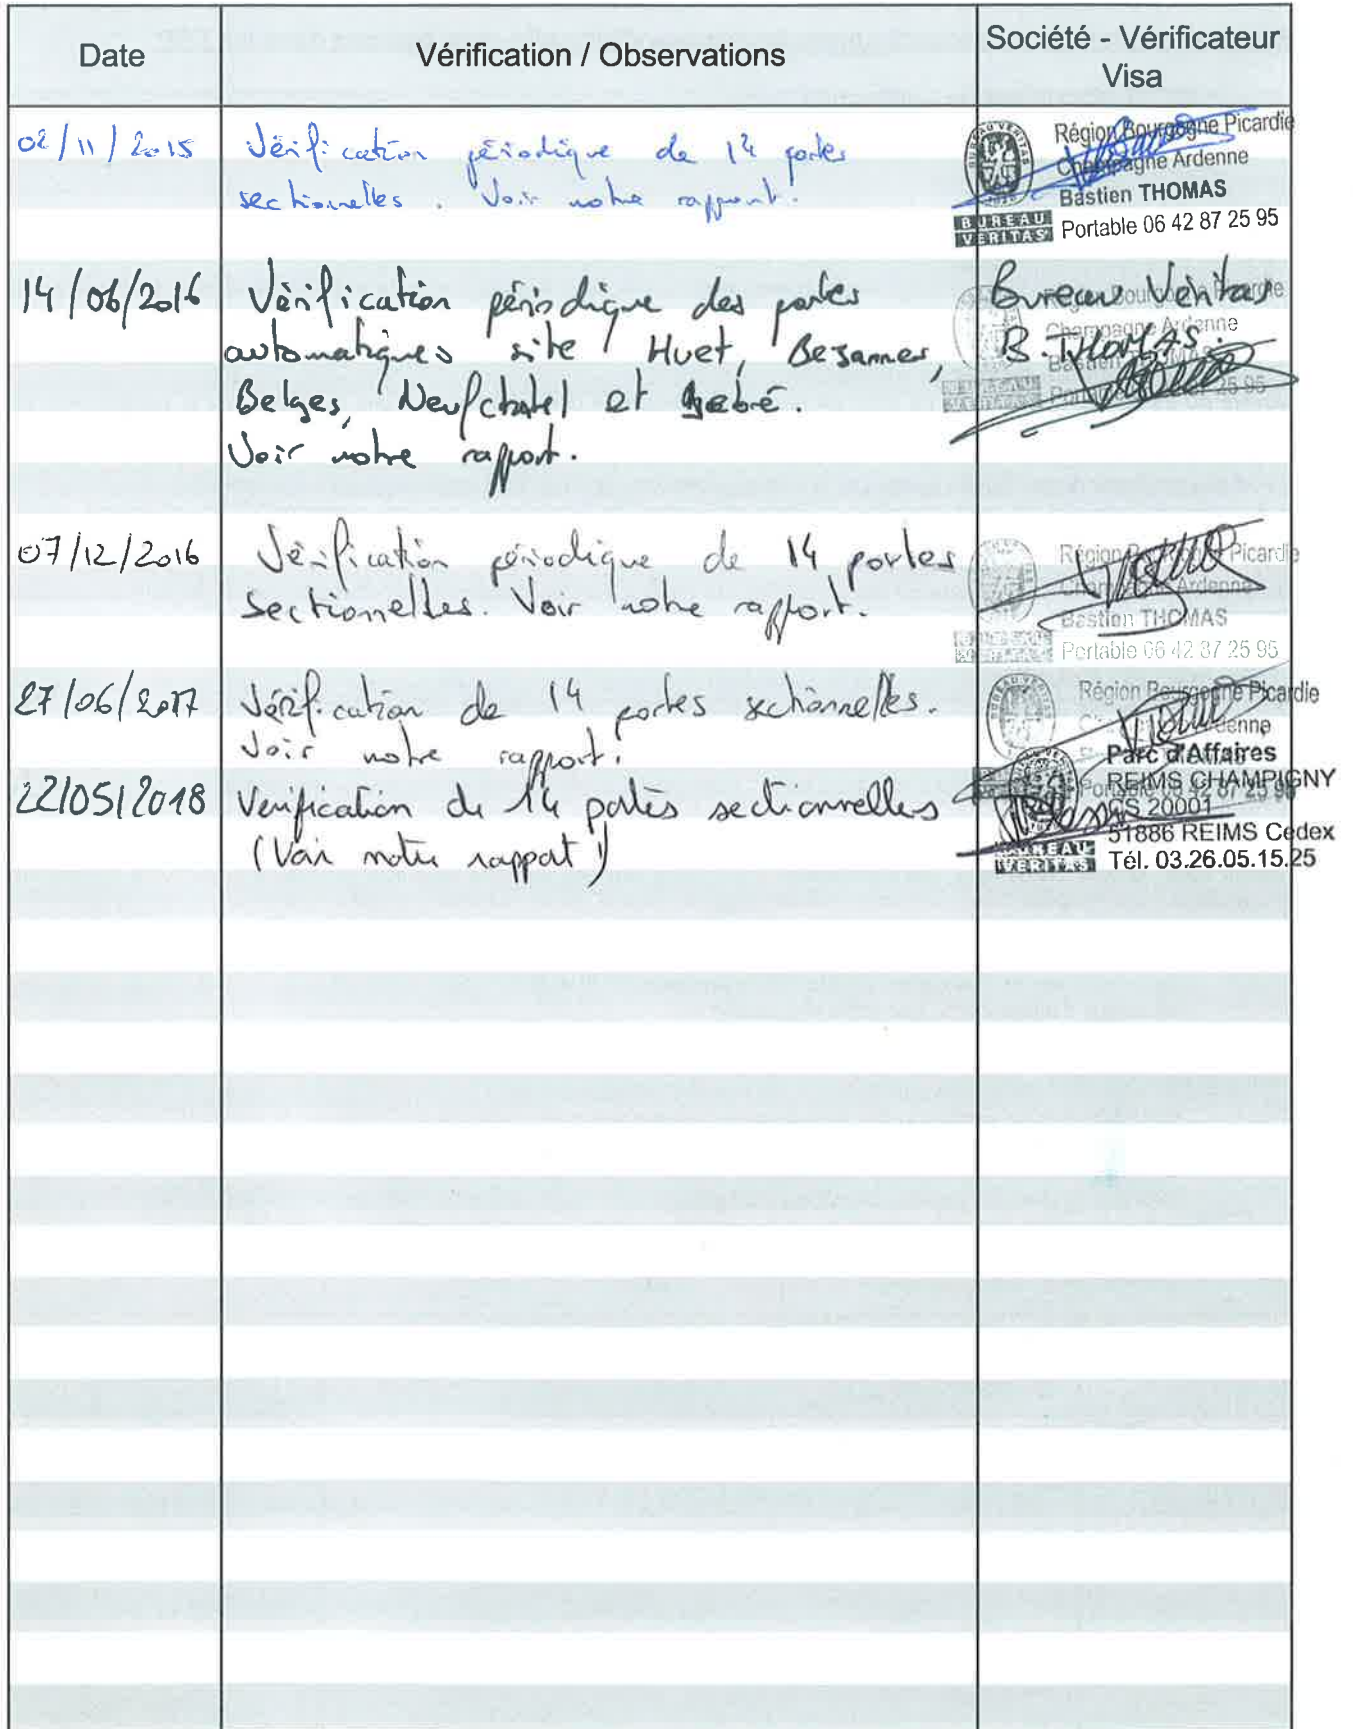 Date
Vérification / Observations
Société - Vérificateur
Visa
02/11/2015
Vérification périodique de 14 portes
sectionnelles. Voir notre rapport.
Région Bourgogne Picardie
Champagne Ardenne
Bastien THOMAS
BUREAU
VERITAS
Portable 06 42 87 25 95
14/06/2016
Vérification périodique des portes
automatiques site Huet, Bezannes,
Belges, Neufchatel et
Voir notre rapport.
Bureau Veritas
B. THOMAS.
07/12/2016
Vérification périodique de 14 portes
sectionnelles. Voir notre rapport.
Région Picardie
Ardenne
Bastien THOMAS
Portable 06 42 87 25 95
27/06/2017
Vérification de 14 portes sectionnelles.
Voir notre rapport.
Région Bourgogne Picardie
22/05/2018
Verification de 14 portes sectionnelles
(Voir notre rapport)
Parc d'Affaires
REIMS CHAMPIGNY
CS 20001
51886 REIMS Cedex
BUREAU
VERITAS
Tél. 03.26.05.15.25